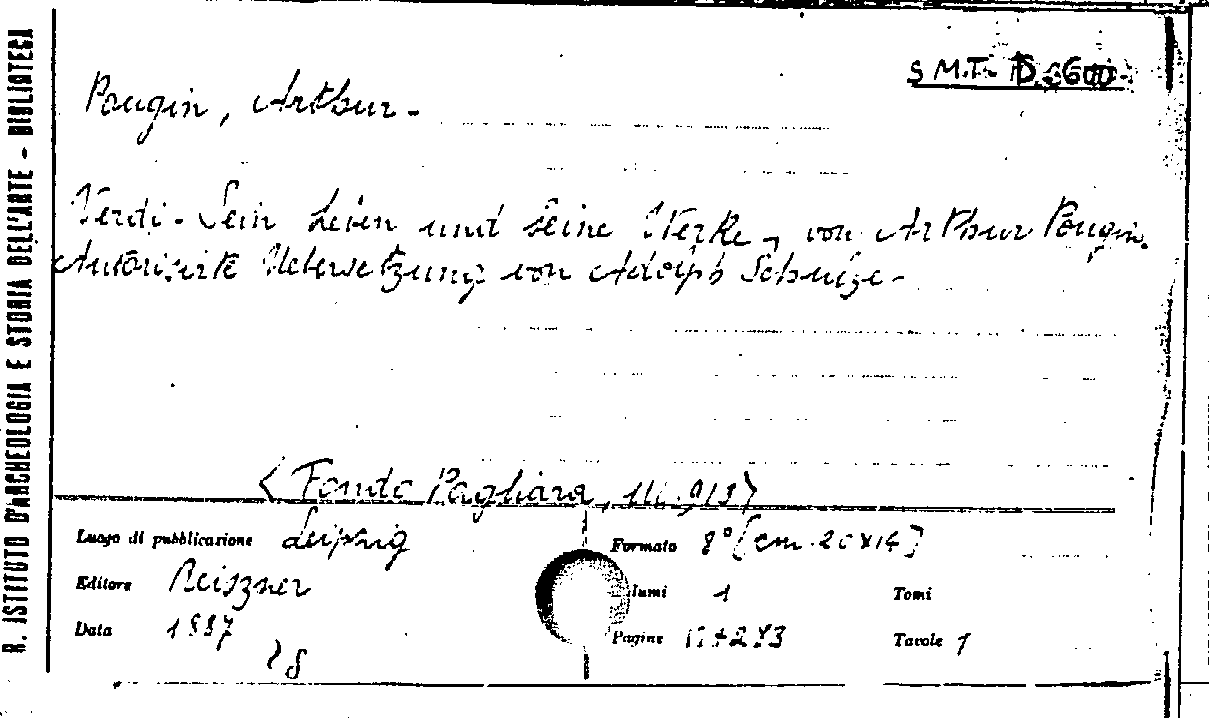 R. ISTITUTO D'ARCHEOLOGIA E STORIA DELL'ARTE - BIBLIOTECA
S M.T.
Pougin, Arthur -
Verdi - Sein Leben und seine Werke, von Arthur Pougin.
Autorisirte Uebersetzung von Adolph Schulze -
<Fondo Pagliara, III. 913>
Luogo di pubblicazione Leipzig
Formato 8° [cm. 20x14]
Editore Reiszner
lumi 1
Tomi
Data 1887
Pagine
Tavole 1